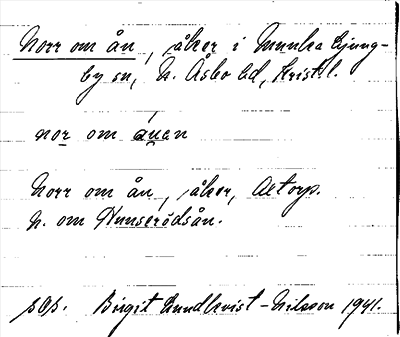 Norr om ån, åker i Munka Ljung-
by sn, N. Åsbo hd, Krist. l.
nor om áuen
Norr om ån, åker, Altorp.
N. om Nunserödsån.
Birgit Lundkvist-Nilsson 1941.